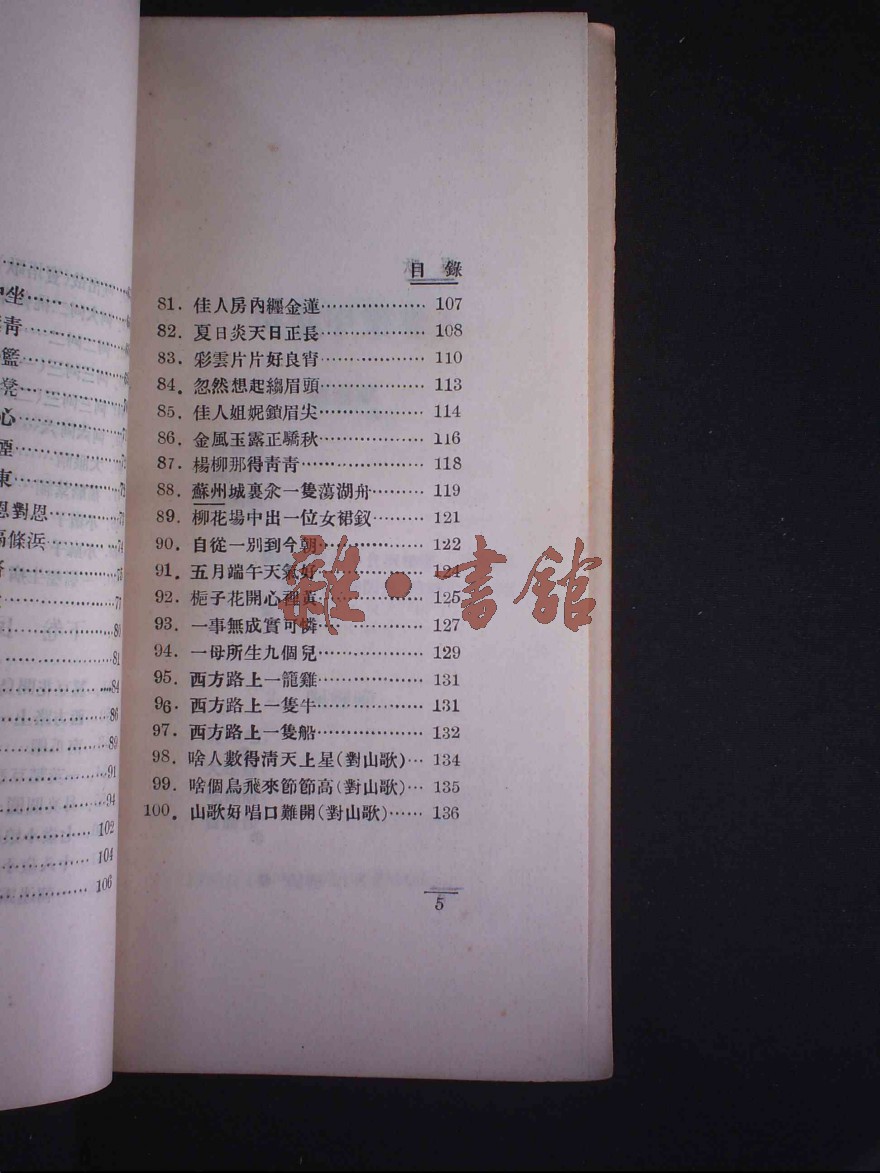 目錄
81. 佳人房內纒金蓮 107
82. 夏日炎天日正長 108
83. 彩雲片片好良宵 110
84. 忽然想起縐眉頭 113
85. 佳人姐妮鎖眉尖 114
86. 金風玉露正驕秋 116
87. 楊柳那得靑靑 118
88. 蘇州城裏汆一隻蕩湖舟 119
89. 柳花場中出一位女裙釵 121
90. 自從一別到今朝 122
91. 五月端午天氣好 124
92. 梔子花開心裡黃 125
93. 一事無成實可憐 127
94. 一母所生九個兒 129
95. 西方路上一籠雞 131
96. 西方路上一隻牛 131
97. 西方路上一隻船 132
98. 啥人數得淸天上星(對山歌) 134
99. 啥個鳥飛來節節高(對山歌) 135
100. 山歌好唱口難開(對山歌) 136
5
坐
靑
籃
凳
心
東
恩對恩
條浜
77
80
81
84
86
89
91
94
102
104
106
雜·書舘